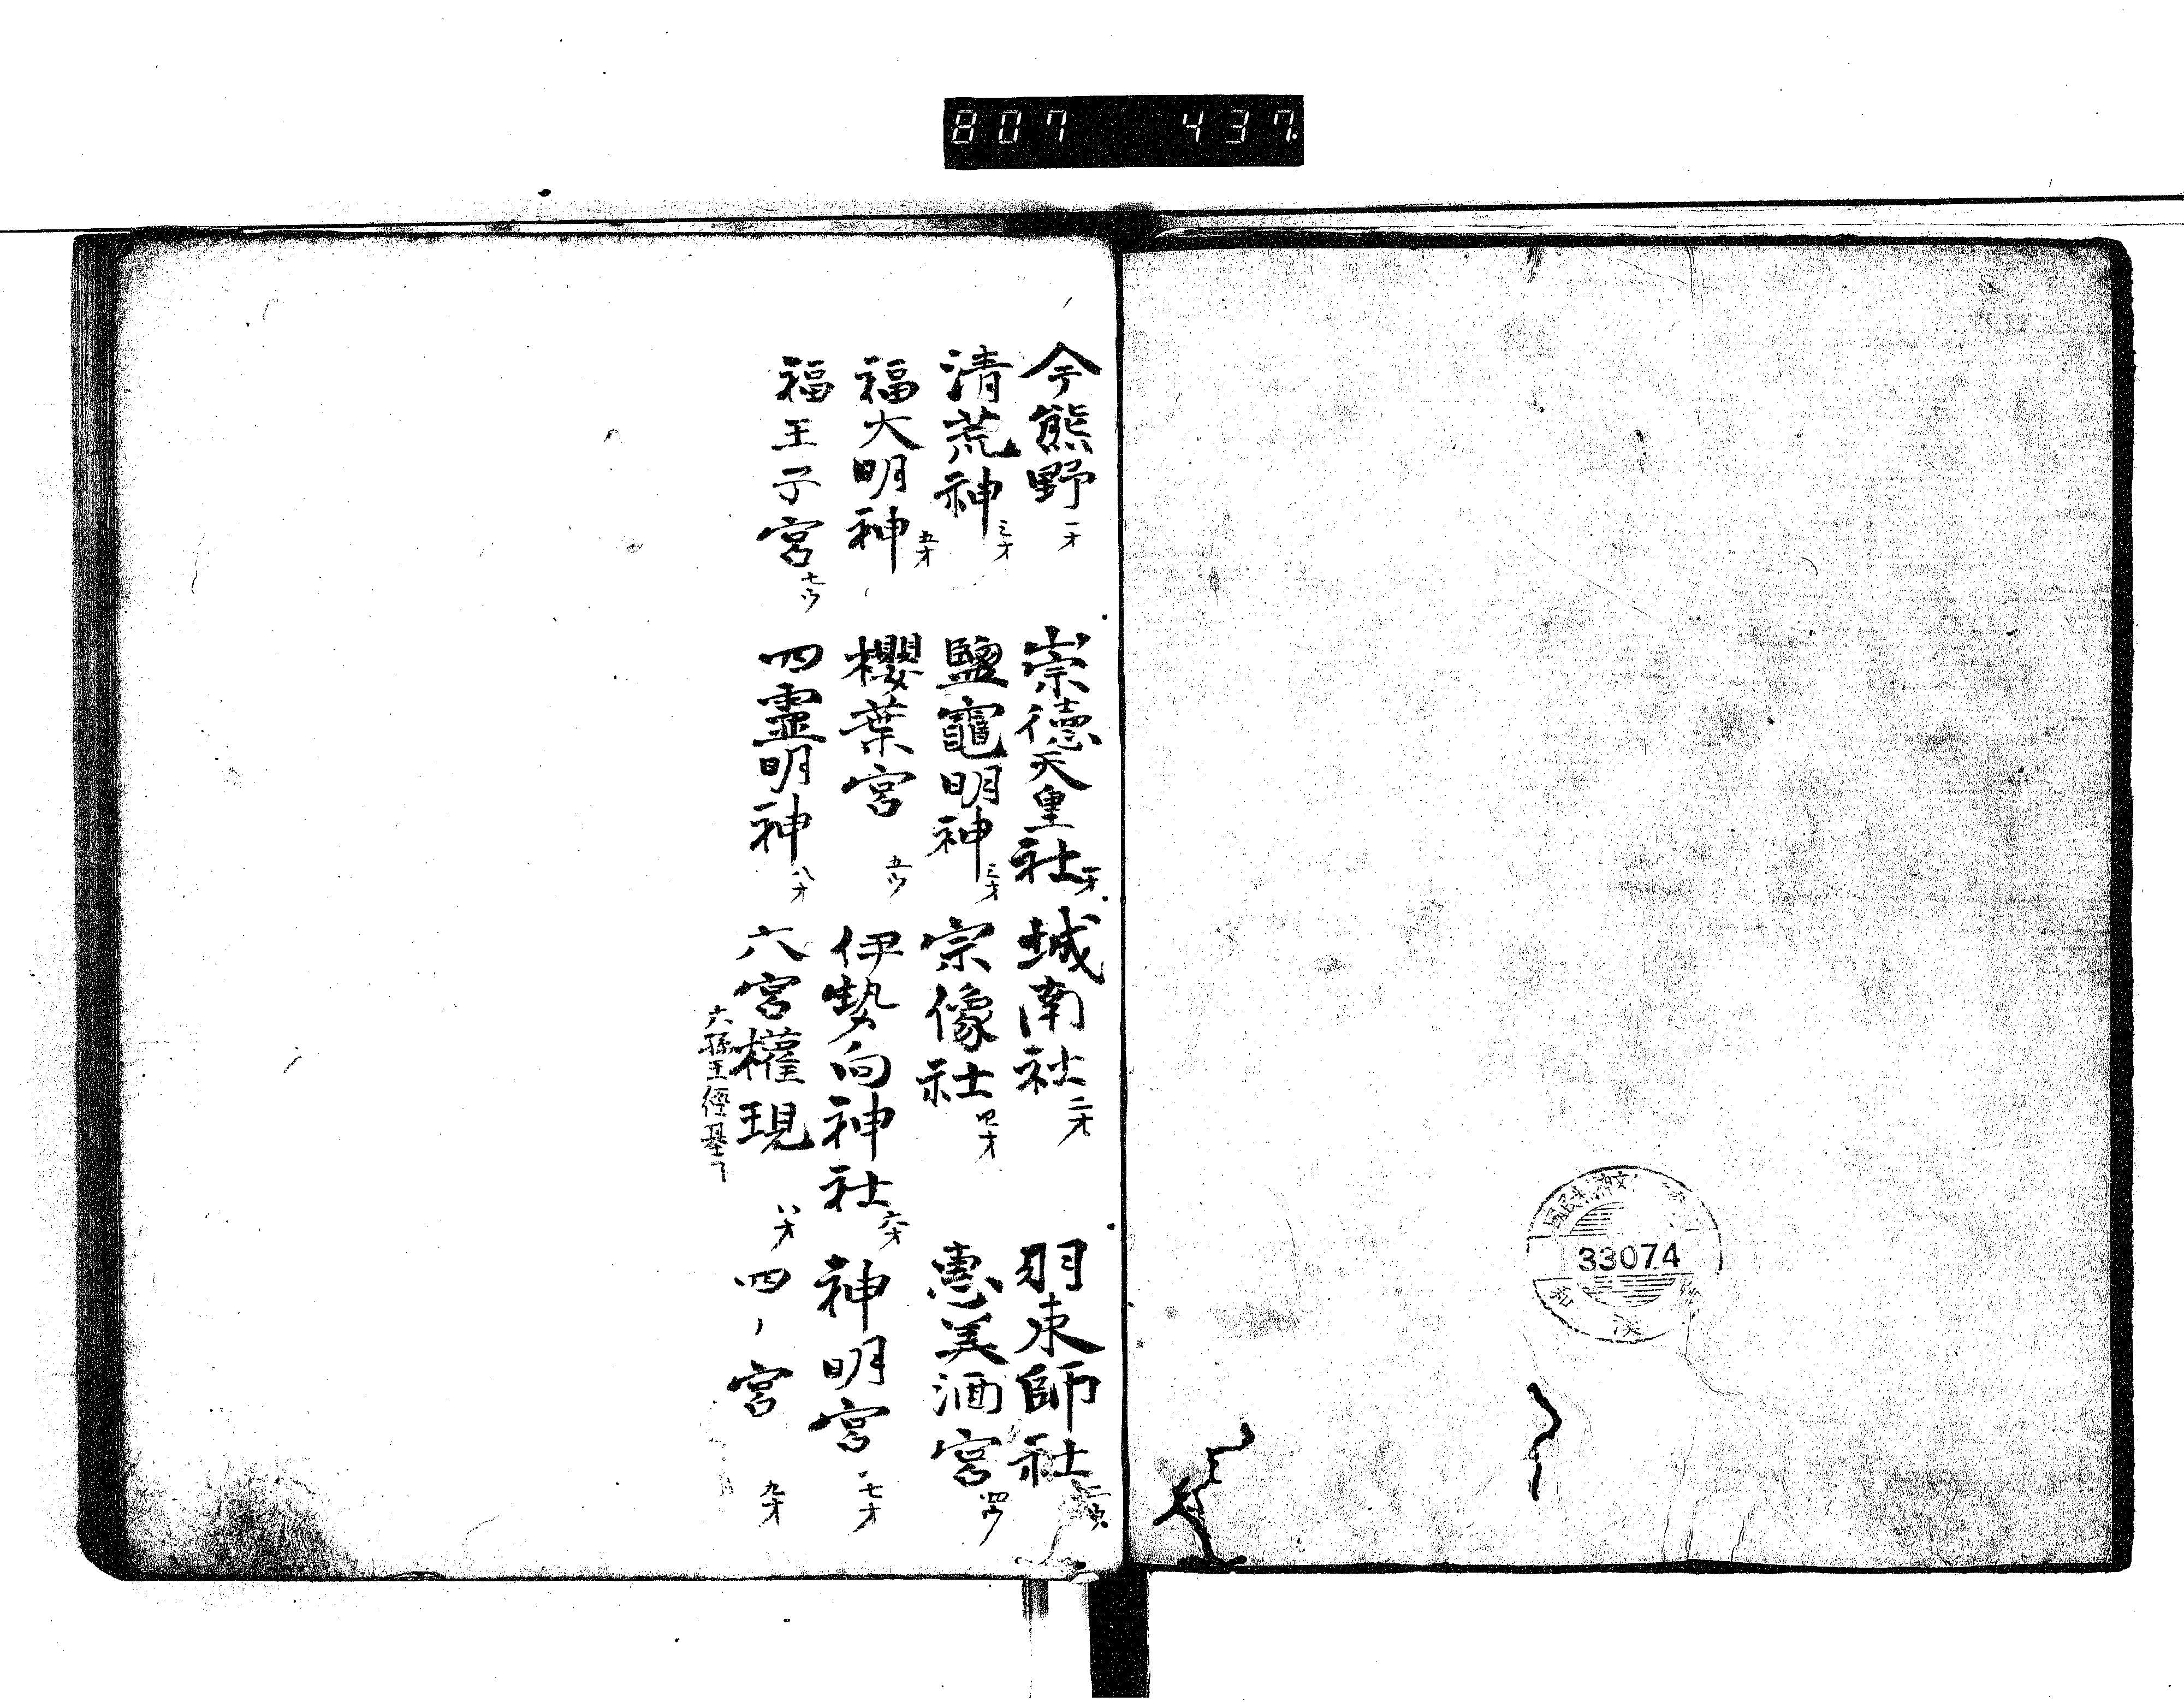 807 437.
33074
今熊野 一才 崇德天皇社 一才 城南社 二才 羽束師社
清荒神 三才 鹽竈明神 三才 宗像社 四才 惠美酒宮 四ウ
福大明神 五才 櫻葉宮 五ウ 伊勢向神社 六才 神明宮 七才
福王子宮 七ウ 四霊明神 八才 六宮權現 八才 四ノ宮 九才
六孫王經基